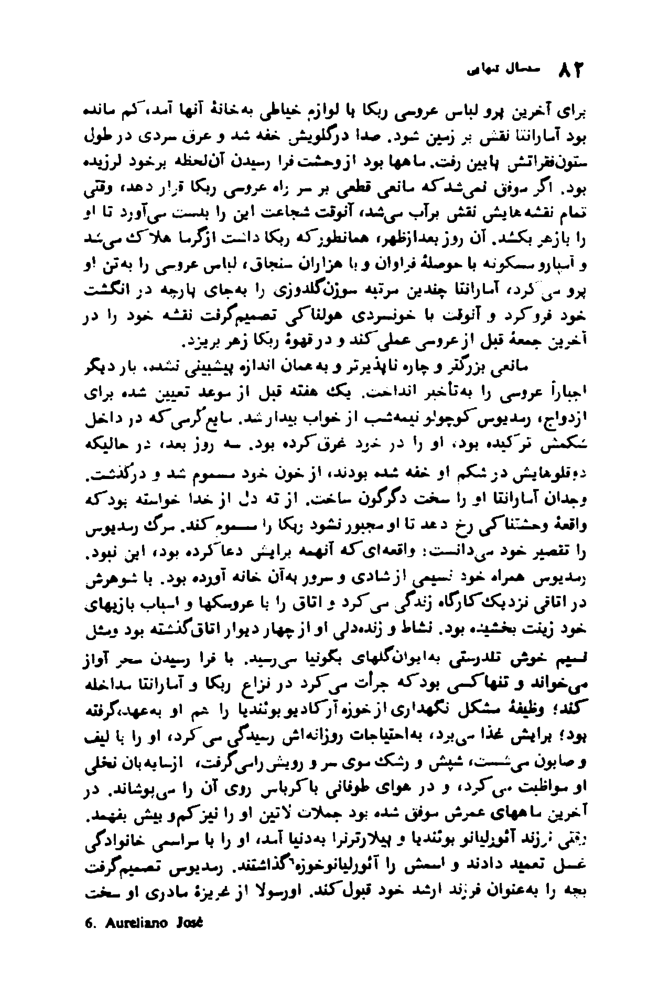 ۸۲ صدسال تنهایی
برای آخرین پرو لباس عروسی ربکا با لوازم خیاطی به‌خانهٔ آنها آمد، کم مانده
بود آمارانتا نقش بر زمین شود. صدا درگلویش خفه شد و عرق سردی در طول
ستون‌فقراتش پایین رفت. ماهها بود از وحشت فرا رسیدن آن‌لحظه برخود لرزیده
بود. اگر موفق نمی‌شد که مانعی قطعی بر سر راه عروسی ربکا قرار دهد، وقتی
تمام نقشه‌هایش نقش برآب می‌شد، آنوقت شجاعت این را بدست می‌آورد تا او
را بازهر بکشد. آن روز بعدازظهر، همانطورکه ربکا داشت ازگرما هلاک می‌شد
و آمپارو مسکوته با حوصلهٔ فراوان و با هزاران سنجاق، لباس عروسی را به‌تن او
پرو می‌کرد، آمارانتا چندین مرتبه سوزن‌گلدوزی را به‌جای پارچه در انگشت
خود فروکرد و آنوقت با خونسردی هولناکی تصمیم‌گرفت نقشه خود را در
آخرین جمعهٔ قبل از عروسی عملی‌کند و در قهوهٔ ربکا زهر بریزد.
مانعی بزرگتر و چاره ناپذیرتر و به‌همان اندازه پیشبینی نشده، بار دیگر
اجباراً عروسی را به‌تأخیر انداخت. یک هفته قبل از موعد تعیین شده برای
ازدواج، رمدیوس کوچولو نیمه‌شب از خواب بیدار شد. مایع گرمی که در داخل
شکمش ترکیده بود، او را در خود غرق کرده بود. سه روز بعد، در حالیکه
دوقلوهایش در شکم او خفه شده بودند، از خون خود مسموم شد و درگذشت.
وجدان آمارانتا او را سخت دگرگون ساخت. از ته دل از خدا خواسته بود که
واقعهٔ وحشتناکی رخ دهد تا او مجبور نشود ربکا را مسموم کند. مرگ رمدیوس
را تقصیر خود می‌دانست؛ واقعه‌ای که آنهمه برایش دعا کرده بود، این نبود.
رمدیوس همراه خود نسیمی از شادی و سرور به‌آن خانه آورده بود. با شوهرش
در اتاقی نزدیک کارگاه زندگی می‌کرد و اتاق را با عروسکها و اسباب بازیهای
خود زینت بخشیده بود. نشاط و زنده‌دلی او از چهار دیوار اتاق گذشته بود ومثل
نسیم خوش تندرستی به‌ایوان‌گلهای بگونیا می‌رسید. با فرا رسیدن سحر آواز
می‌خواند و تنها کسی بودکه جرأت می‌کرد در نزاع ربکا و آمارانتا مداخله
کند؛ وظیفهٔ مشکل نگهداری از خوزه آرکادیو بوئندیا را هم او به‌عهده‌گرفته
بود؛ برایش غذا می‌برد، به‌احتیاجات روزانه‌اش رسیدگی می‌کرد، او را با لیف
و صابون می‌شست، شپش و رشک موی سر و رویش رامی‌گرفت، ازسایه‌بان نخلی
او مواظبت می‌کرد، و در هوای طوفانی با کرباس روی آن را می‌پوشاند. در
آخرین ماههای عمرش موفق شده بود جملات لاتین او را نیز کم و بیش بفهمد.
وقتی فرزند آئورلیانو بوئندیا و پیلارترنرا به‌دنیا آمد، او را با مراسمی خانوادگی
غسل تعمید دادند و اسمش را آئورلیانوخوزه⁶گذاشتند. رمدیوس تصمیم‌گرفت
بچه را به‌عنوان فرزند ارشد خود قبول کند. اورسولا از غریزهٔ مادری او سخت
6. Aureliano José